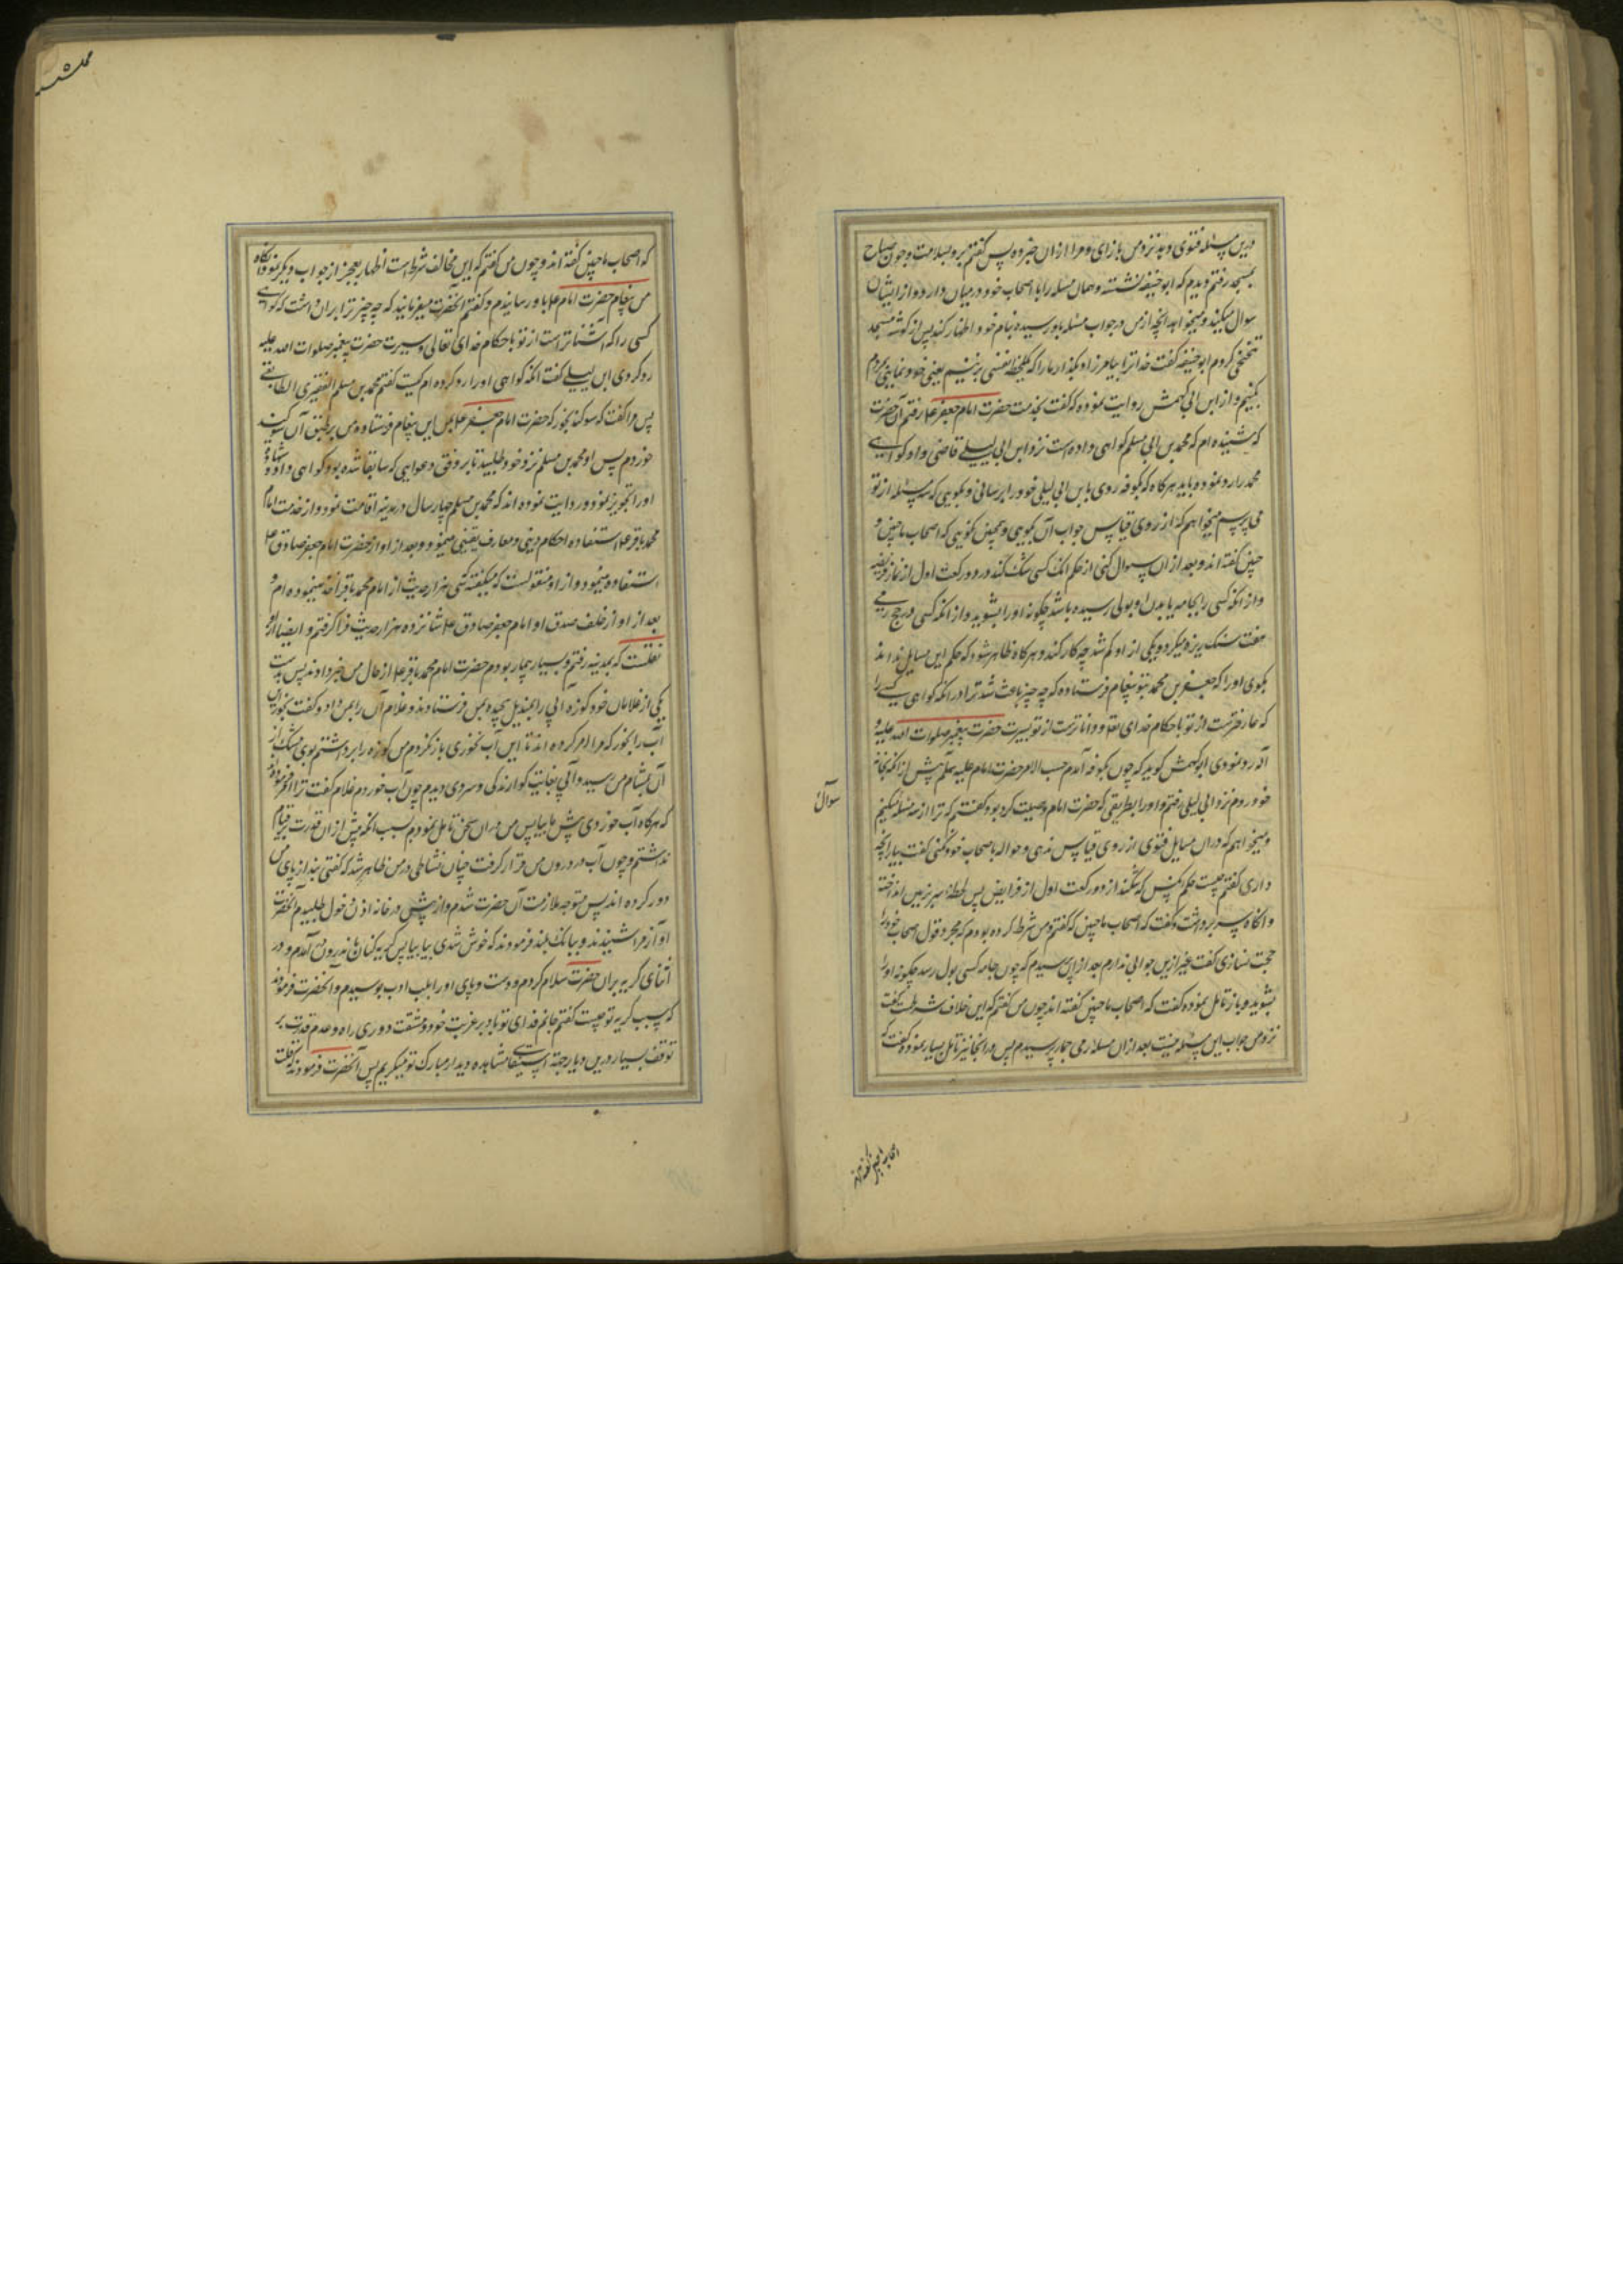 درین مسئله فتوی دهد نزد من باز ای و مرا ازان خبر ده پس گفتم برو بسلامت و چون صباح
بمسجد رفتم و دیدم که ابو حنیفه نشسته و همان مسئله را با اصحاب خود در میان دارد و از ایشان
سوال میکند و میخواهد انچه از من در جواب مسئله باو رسیده بنام خود اظهار کند پس از گوشه مسجد
تنحنحی کردم ابو حنیفه گفت خدا ترا بیامرزاد بگذار ما را که یکلحظه نفسی بزنیم یعنی خودنمایی بمردم
بکنیم و از ابن ابی کهمش روایت نموده که گفت بخدمت حضرت امام جعفر ع رفتم آن حضرت
که شنیده ام که محمد بن ابی مسلم گواهی داده است نزد ابن ابی لیلی قاضی و او گواهی
محمد را رد نموده باید هرگاه که بکوفه روی با بن ابی لیلی خود را برسانی و بگویی که سه مسئله از تو
می پرسم میخواهم که از روی قیاس جواب آن نگویی و همچنین نگویی که اصحاب ما چنین و
چنین گفته اند و بعد از ان سوال کنی از حکم انک کسی شک کند در دو رکعت اول از نماز فریضه
و از انکه کسی را بجامه یا بدن او بولی رسیده باشد چگونه اورا بشوید و از انکه کسی در حج رمی
هفت سنک ریزه میکرد و یکی از او کم شد چه کار کند و هرگاه ظاهر شود که حکم این مسایل نداند
بگوی او را که جعفر بن محمد بتو پیغام فرستاده که چه چیز باعث شد ترا در انکه گواهی کسی را
که عارفترست از تو باحکام خدای تعالی و داناترست از تو بسیرت حضرت پیغمبر صلوات الله علیه و
آله رد نمودی ابو کهمش گوید که چون بکوفه آمدم حسب الامر حضرت امام علیه سلم پیش از انکه بخانه
خود روم نزد ابی لیلی رفتم و او را بطریقی که حضرت امام وصیت کرده بود گفتم که ترا از سه مسئله میکنم
سوال
و میخواهم که دران مسایل فتوی از روی قیاس ندهی و حواله باصحاب خود نکنی گفت بیار انچه
داری گفتم چیست حکم انکس که شک کند از دو رکعت اول از فرایض پس لحظه سر بر زمین انداخته
و انگاه سر برداشت و گفت که اصحاب ما چنین که گفتم و من شرط کرده بودم که مجرد قول اصحاب خود را
حجت نسازی گفت غیر ازین جوابی ندارم بعد ازان پرسیدم که چون جامه کسی بول رسد چگونه او را
بشوید و باز تامل نموده گفت که اصحاب ما چنین گفته اند چون من گفتم که این خلاف شرطست گفت
نزد من جواب این مسئله نیست بعد ازان مسئله رمی جمار پرسیدم پس در انجا نیز تامل بسیار نموده گفت که
اصحاب ما چنین گفته اند
که اصحاب ما چنین گفته اند و چون من گفتم که این مخالف شرط است اظهار بعجز از جواب دیگر نمود انگاه
من پیغام حضرت امام ع باو رسانیدم و گفتم آنحضرت میفرمایند که چه چیز ترا بران داشت که گواهی
کسی را که آشناتر است از تو باحکام خدای تعالی و سیرت حضرت پیغمبر صلوات الله علیه
رد کردی ابن لیلی گفت انکه گواهی او را رد کرده ام کیست گفتم محمد بن مسلم الثقفی الطایفی
پس مرا گفت که سوگند بخور که حضرت امام جعفر ع این پیغام فرستاده و من برطبق آن سوگند
خوردم پس او محمد بن مسلم نزد خود طلبید تا بر وفق دعوایی که سابقا شده بود گواهی داد و شهادت
او را تجویز نمود و روایت نموده اند که محمد بن مسلم چهار سال در مدینه اقامت نمود و از خدمت امام
محمد باقر ع استفاده احکام دینی و معارف یقینی مینمود و بعد از او از حضرت امام جعفر صادق ع
استفاده مینمود و از او منقولست که میگفته که سی هزار حدیث از امام محمد باقر اخذ نموده ام و
بعد از او از خلف صدق او امام جعفر صادق ع شانزده هزار حدیث فرا گرفتم و ایضا از او
نقلست که بمدینه رفتم و بسیار بیمار بودم حضرت امام محمد باقر ع از حال من خبر دادند پس بدست
یکی از غلامان خود کوزه آبی را بمندیل پیچیده بمن فرستادند و غلام آن را بمن داد و گفت بخور این
آب را بخور که مرا امر کرده اند تا این آب نخوری باز نگردم من کوزه را برداشتم بوی مشک از
آن بمشام من رسید و آبی بغایت گوارندگی و سردی دیدم چون آب خوردم غلام گفت ترا امر فرموده
که هرگاه آب خوردی پیش ما بیا پس من دران سخن تامل نمودم بسبب انکه پیش ازان قدرت بر قیام
نداشتم و چون آب در درون من قرار گرفت چنان نشاطی در من ظاهر شد که گفتی بند از پای من
دور کرده اند پس متوجه ملازمت آن حضرت شدم و از پیش در خانه اذن دخول طلبیدم آنحضرت
آواز مرا شنیدند و ببانک بلند فرمودند که خوش شدی بیا بیا پس گریه کنان باندرون آمدم و در
اثنای گریه بران حضرت سلام کردم و دست و پای او را بلب ادب بوسیدم و آنحضرت فرمودند
که سبب گریه تو چیست گفتم جانم فدای تو باد بر غربت خود و مشقت دوری راه و عدم قدرت بر
توقف بسیار درین دیار جهة استیفای مشاهده دیدار مبارک تو میگریم پس آنحضرت فرمودند که قلت